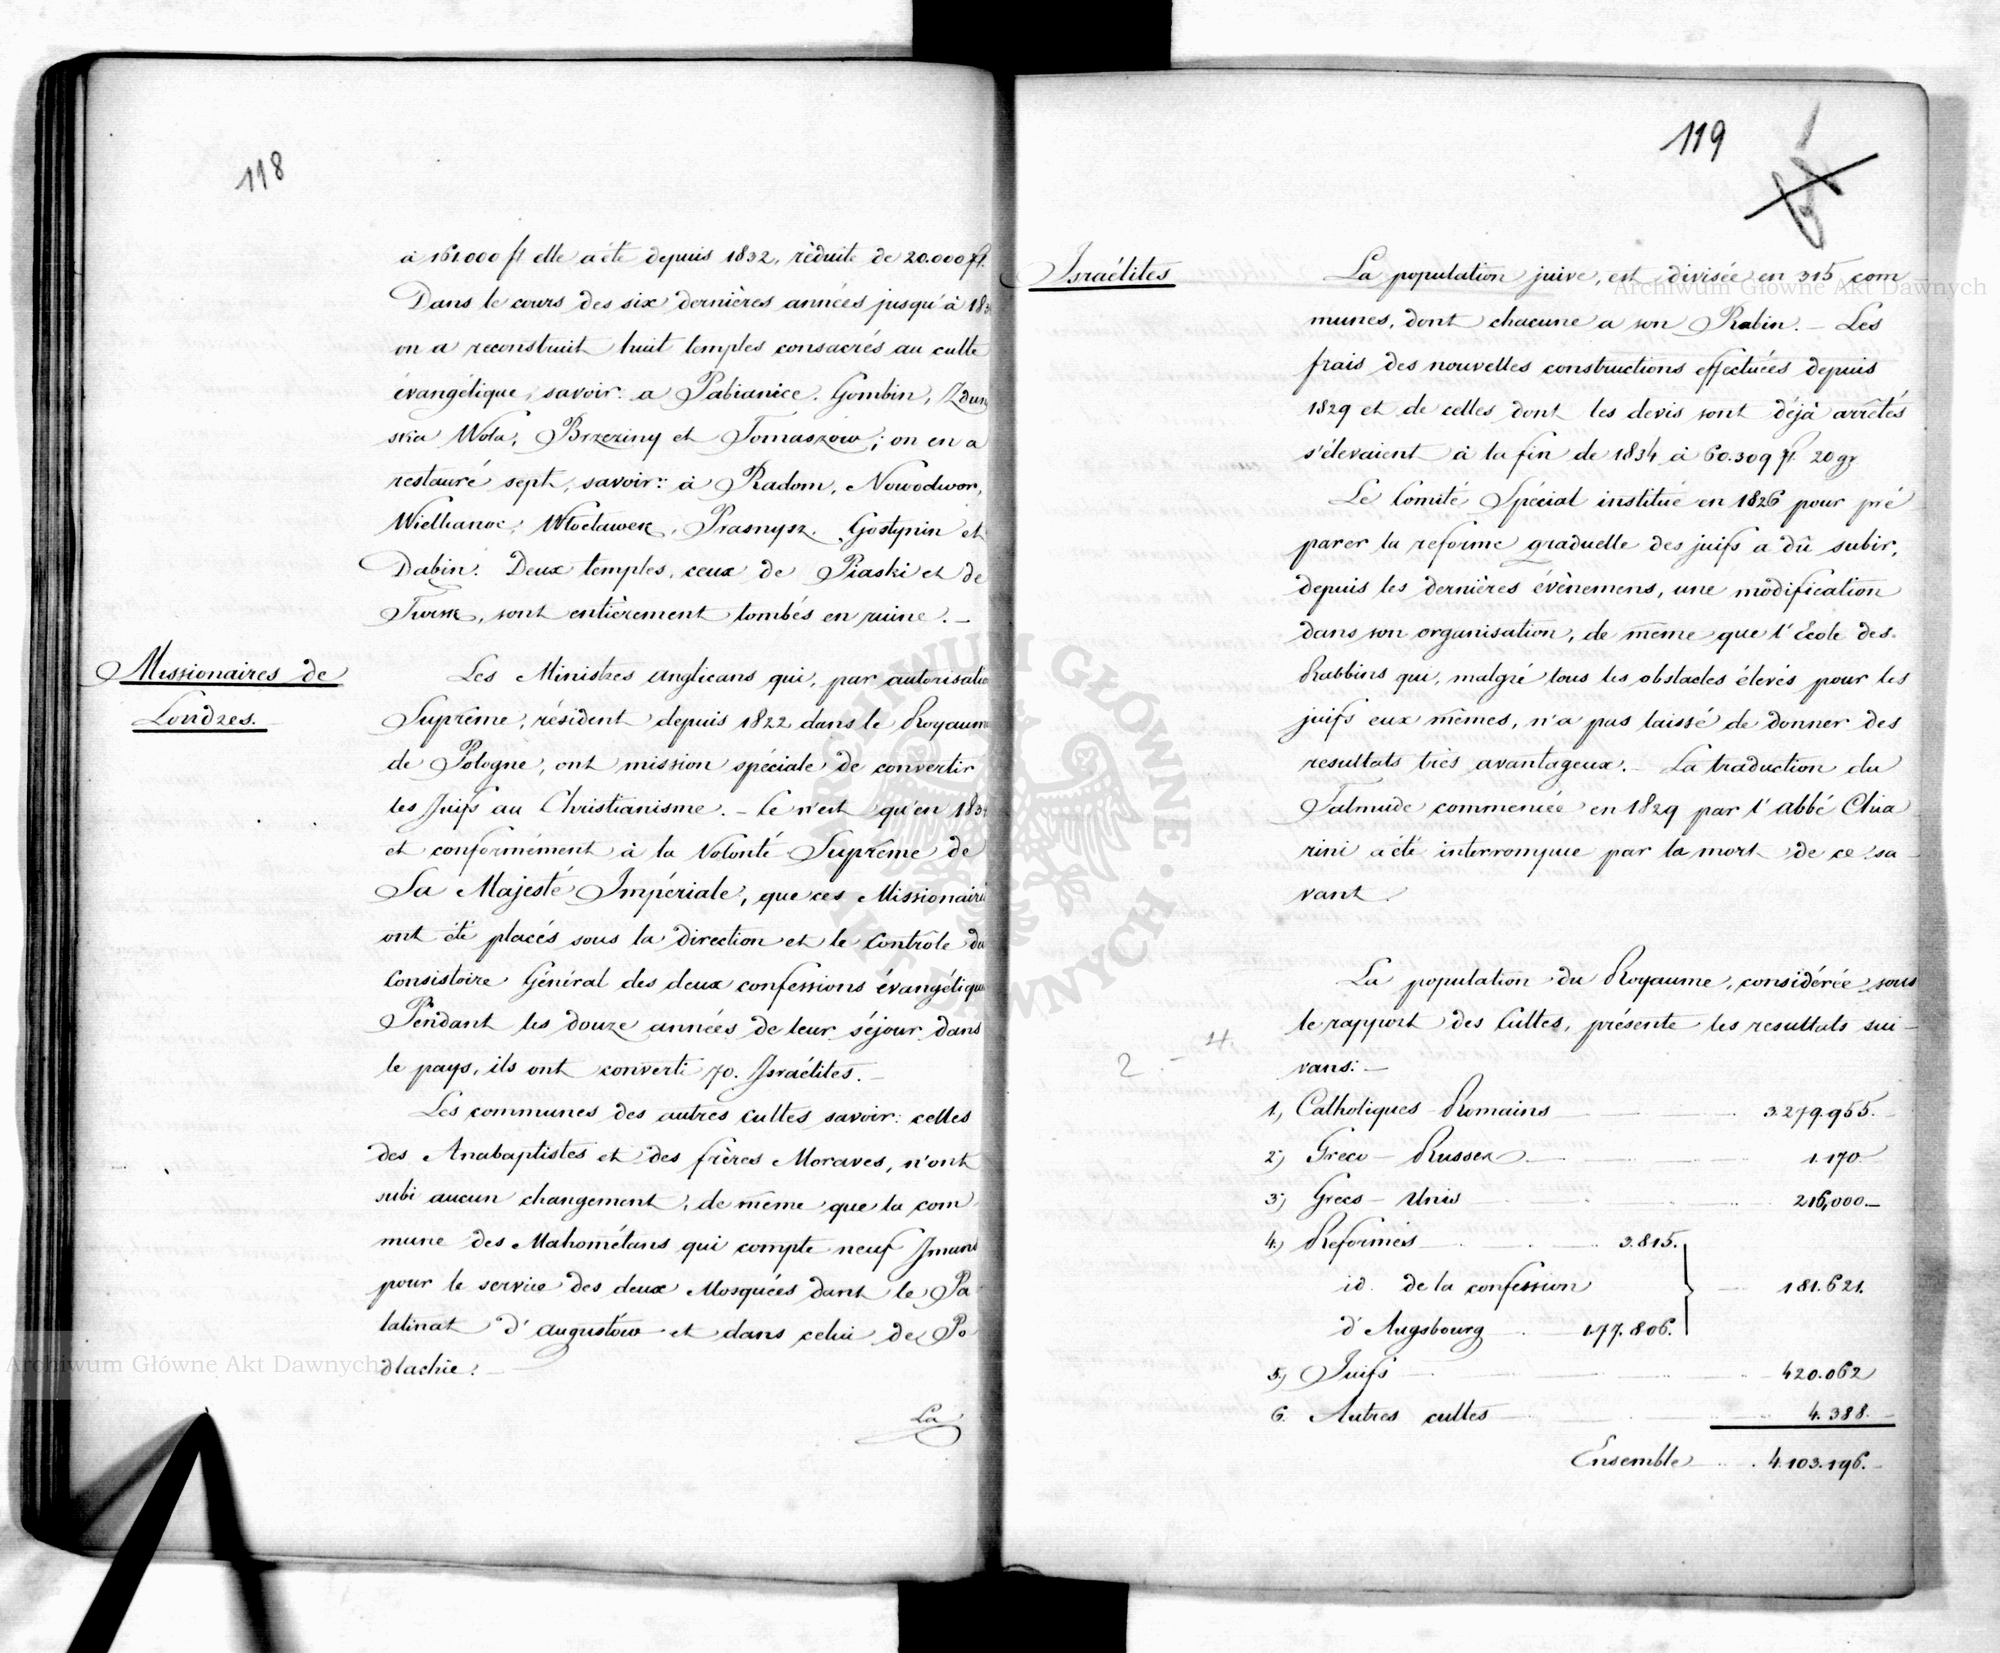 118
à 161.000 fl elle a été depuis 1832, réduite de 20.000 fl.
Dans le cours des six dernières années jusqu'à 183
on a reconstruit huit temples consacrés au culte
évangélique, savoir: a Pabianice, Gombin, Zdun
ska Wola, Brzeziny et Tomaszów; on en a
restauré sept, savoir: à Radom, Nowodwor,
Wielhanoc, Włocławek, Prasnysz, Gostynin et
Dabin. Deux temples, ceux de Piaski et de
Turek, sont entièrement tombés en ruine. —
Missionaires de
Londres.
Les Ministres anglicans qui, par autorisatio
Suprême, résident depuis 1822 dans le Royaume
de Pologne, ont mission spéciale de convertir
les Juifs au Christianisme. — Ce n'est qu'en 183
et conformément à la Volonté Suprême de
Sa Majesté Impériale, que ces Missionaires
ont été placés sous la direction et le Contrôle du
Consistoire Général des deux confessions évangélique
Pendant les douze années de leur séjour dans
le pays, ils ont converti 70. Israélites. —
Les communes des autres cultes savoir: celles
des Anabaptistes et des frères Moraves, n'ont
subi aucun changement, de même que la com
mune des Mahométans qui compte neuf Imans
pour le service des deux Mosquées dans le Pa
latinat d'Augustów et dans celui de Po
dlachie. —
La
119
Israélites
La population juive, est divisée en 315 com
munes, dont chacune a son Rabin. — Les
frais des nouvelles constructions effectuées depuis
1829 et de celles dont les devis sont déjà arrêtés
s'élevaient à la fin de 1834 à 60.309 fl. 20 gr
Le Comité Spécial institué en 1826 pour pré
parer la reforme graduelle des juifs a dû subir,
depuis les dernières évènemens, une modification
dans son organisation, de même que l'Ecole des
Rabbins qui, malgré tous les obstacles élevés pour les
juifs eux mêmes, n'a pas laissé de donner des
resultats très avantageux. — La traduction du
Talmude commencée en 1829 par l'abbé Chia
rini a été interrompue par la mort de ce sa
vant.
La population du Royaume, considérée sous
le rapport des Cultes, présente les resultats sui—
vans: —
2 — 4.
1, Catholiques Romains 3.279.955.
2, Greco — Russes 1.170
3, Grecs — Unis 216,000.—
4, Reformés 3.815.
id. de la confession 181.621.
d'Augsbourg 177.806.
5, Juifs 420.062
6. Autres cultes 4.388.
Ensemble 4.103.196.
Archiwum Główne Akt Dawnych
Archiwum Główne Akt Dawnych
ARCHIWUM GŁÓWNE AKT DAWNYCH